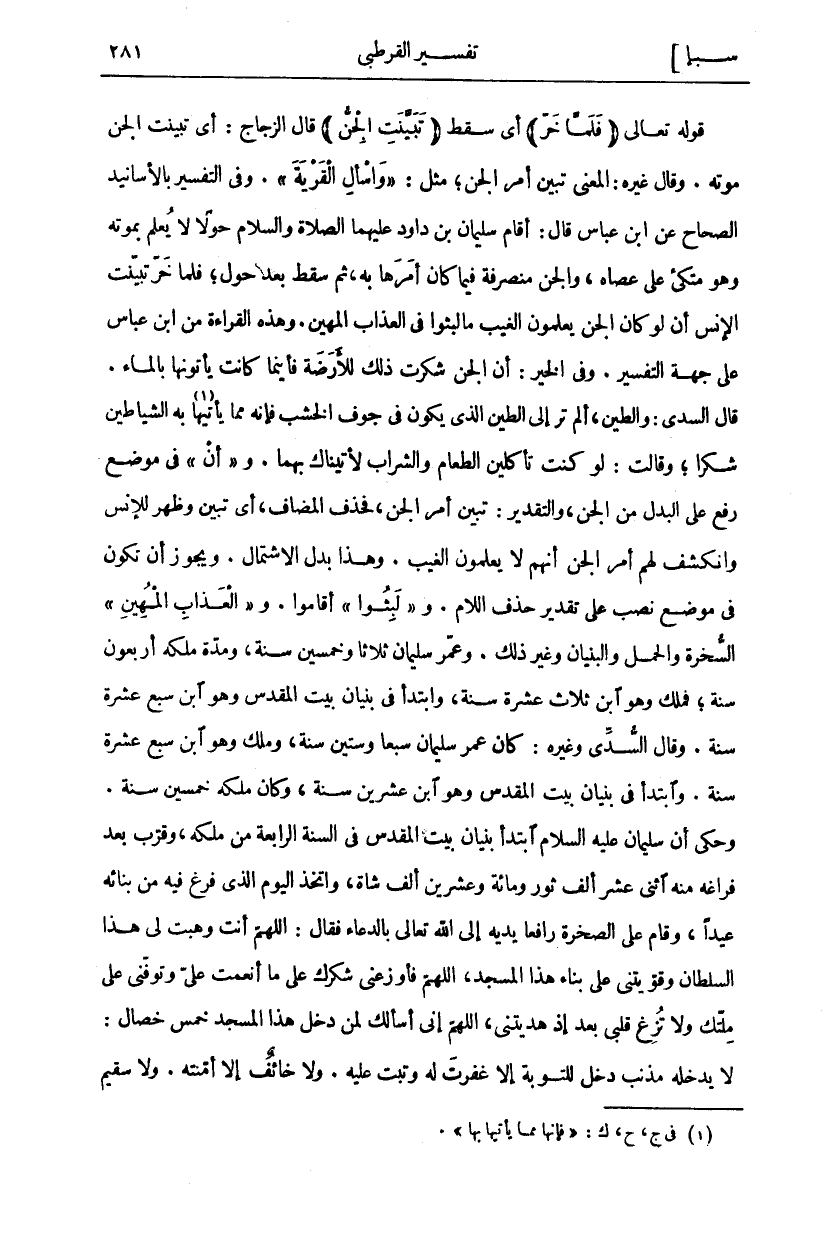 سـبإ ] تفسـير القرطبى ٢٨١
قوله تعـالى ﴿ فَلَمَّا خَرَّ ﴾ أى سـقط ﴿ تَبَيَّنَتِ الْجِنُّ ﴾ قال الزجاج : أى تبينت الجن
موته . وقال غيره : المعنى تبين أمر الجن ؛ مثل : « وَاسْأَلِ الْقَرْيَةَ » . وفى التفسير بالأسانيد
الصحاح عن ابن عباس قال : أقام سليمان بن داود عليهما الصلاة والسلام حولًا لا يُعلم بموته
وهو متكئ على عصاه ، والجن منصرفة فيما كان أمَرَها به ، ثم سقط بعد حول ؛ فلما خَرّ تبيّنت
الإنس أن لو كان الجن يعلمون الغيب مالبثوا فى العذاب المهين . وهذه القراءة من ابن عباس
على جهـة التفسير . وفى الخبر : أن الجن شكرت ذلك للأَرَضَة فأينما كانت يأتونها بالمـاء .
قال السدى : والطين ، ألم تر إلى الطين الذى يكون فى جوف الخشب فإنه مما يأتيها (١) به الشياطين
شـكرا ؛ وقالت : لو كنت تأكلين الطعام والشراب لأتيناك بهما . و « أنْ » فى موضـع
رفع على البدل من الجن ، والتقدير : تبين أمر الجن ، فحذف المضاف ، أى تبين وظهر للإنس
وانكشف لهم أمر الجن أنهم لا يعلمون الغيب . وهـذا بدل الاشتمال . ويجوز أن تكون
فى موضـع نصب على تقدير حذف اللام . و « لَبِثُـوا » أقاموا . و « الْعَـذَابِ الْمُهِينِ »
السُّخرة والحمـل والبنيان وغير ذلك . وعمّر سليمان ثلاثا وخمسين سـنة ، ومدّة ملكه أربعون
سنة ؛ فملك وهو آبن ثلاث عشرة سـنة ، وابتدأ فى بنيان بيت المقدس وهو آبن سبع عشرة
سنة . وقال السُّـدِّى وغيره : كان عمر سليمان سبعا وستين سنة ، وملك وهو آبن سبع عشرة
سنة . وآبتدأ فى بنيان بيت المقدس وهو آبن عشرين سـنة ، وكان ملكه خمسين سـنة .
وحكى أن سليمان عليه السلام آبتدأ بنيان بيت المقدس فى السنة الرابعة من ملكه ، وقرّب بعد
فراغه منه آثنى عشر ألف ثور ومائة وعشرين ألف شاة ، واتخذ اليوم الذى فرغ فيه من بنائه
عيداً ، وقام على الصخرة رافعا يديه إلى الله تعالى بالدعاء فقال : اللهمّ أنت وهبت لى هـذا
السلطان وقوّيتنى على بناء هذا المسجد ، اللهمّ فأوزعنى شكرك على ما أنعمت علىّ وتوفّنى على
مِلّتك ولا تُزِغ قلبى بعد إذ هديتنى ، اللهمّ إنى أسألك لمن دخل هذا المسجد خمس خصال :
لا يدخله مذنب دخل للتـوبة إلا غفرتَ له وتبت عليه . ولا خائفٌ إلا أمّنته . ولا سقيم
(١) فى ج ، ح ، ك : « فإنها ممـا يأتيها بها » .